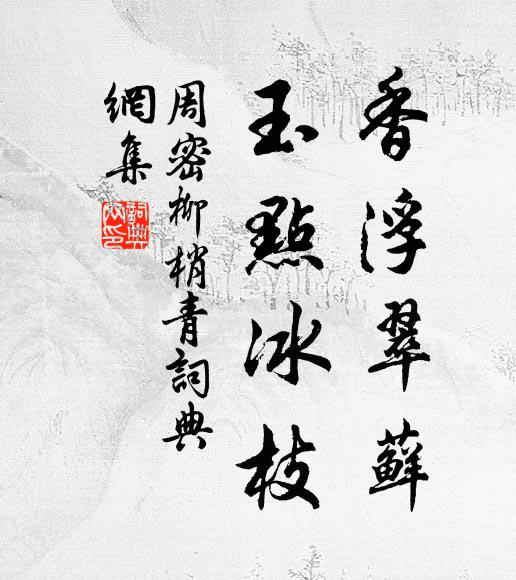 香浮翠蘚
玉點冰枝
周密柳梢青詞典
網集
詞典網印